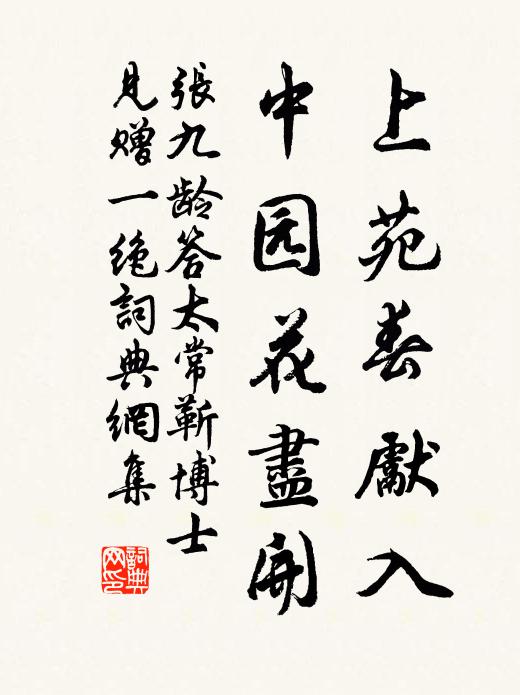 上苑春獻入
中园花盡開
張九龄答太常靳博士
見赠一绝詞典網集
詞典网印